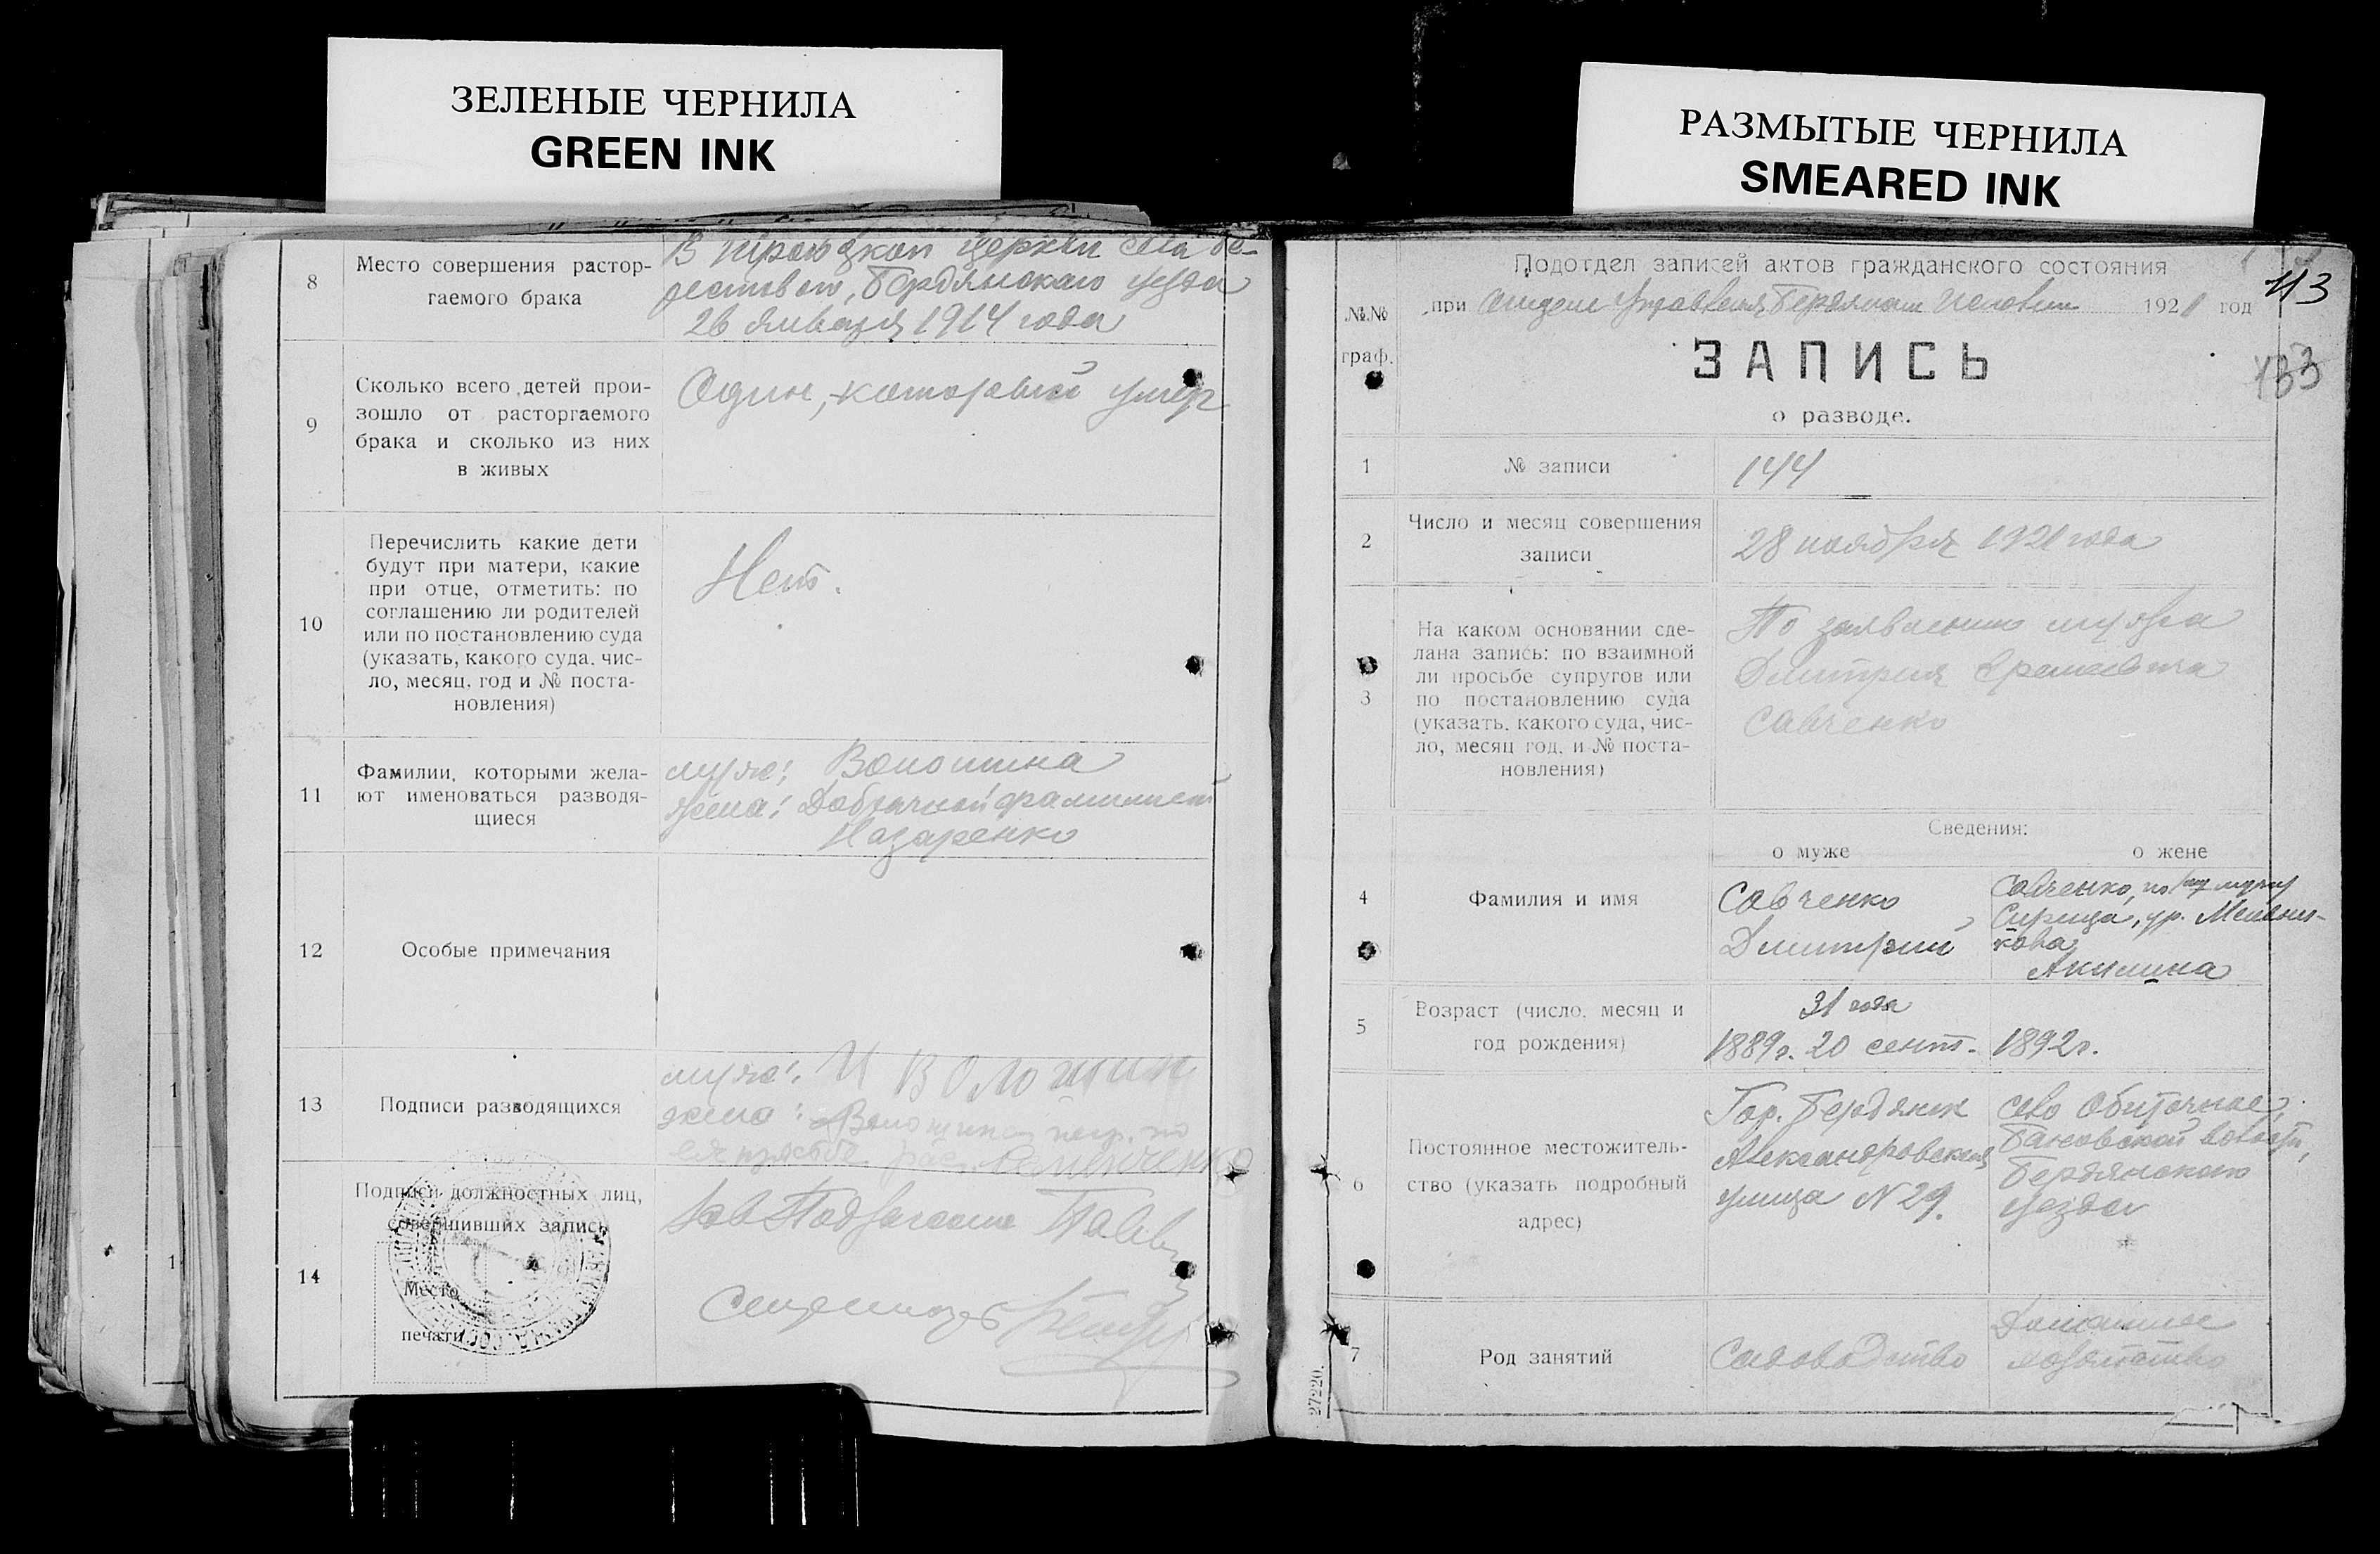 ЗЕЛЕНЫЕ ЧЕРНИЛА
GREEN INK
РАЗМЫТЫЕ ЧЕРНИЛА
SMEARED INK
8
Место совершения растор-
гаемого брака
В Троицкой церкви села Бе-
рестового, Бердянского уезда
26 января 1914 года
9
Сколько всего детей прои-
зошло от расторгаемого
брака и сколько из них
в живых
Один, который умер
10
Перечислить какие дети
будут при матери, какие
при отце, отметить: по
соглашению ли родителей
или по постановлению суда
(указать, какого суда, чис-
ло, месяц, год и № поста-
новления)
Нет.
11
Фамилии, которыми жела-
ют именоваться разводя-
щиеся
муж: Волошина
жена: Добрачной фамилией
Назаренко
12
Особые примечания
13
Подписи разводящихся
муж: И Волошин
жена: Волошина негр. по
ея просьбе рас. Семенченко
14
Подписи должностных лиц,
совершивших запись
Место
печати
Зав Подзагсом
113
133
Подотдел записей актов гражданского состояния
при Отделе Управления Бердянском Исполком 1921 год
№№
граф.
ЗАПИСЬ
о разводе.
1
№ записи
144
2
Число и месяц совершения
записи
28 ноября 1921 года
3
На каком основании сде-
лана запись: по взаимной
ли просьбе супругов или
по постановлению суда
(указать, какого суда, чис-
ло, месяц год, и № поста-
новления)
По заявлению мужа
Дмитрия
Савченко
Сведения:
о муже
о жене
4
Фамилия и имя
Савченко
Дмитрий
Савченко, по мужу
Сирица, ур. Мельни-
кова
Акилина
5
Возраст (число, месяц и
год рождения)
31 года
1889г. 20 сент.
1892г.
6
Постоянное местожитель-
ство (указать подробный
адрес)
Гор. Бердянск
Александровская
улица N 29.
село Обиточное,
волости,
Бердянского
уезда
7
Род занятий
Садоводство
Домашнее
хозяйство
27220.